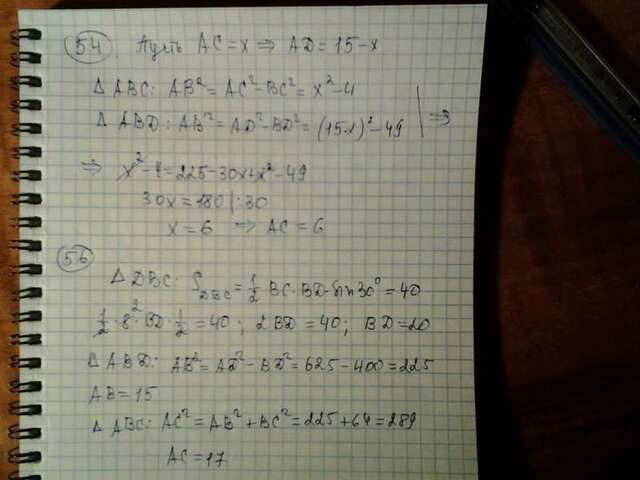 54. Пусть AC = x ⇒ AD = 15 - x
Δ ABC: AB² = AC² - BC² = x² - 4
Δ ABD: AB² = AD² - BD² = (15-x)² - 49 | ⇒
⇒ x² - 4 = 225 - 30x + x² - 49
30x = 180 | :30
x = 6 ⇒ AC = 6
56
Δ DBC: S_DBC = 1/2 BC · BD · sin 30° = 40
1/2 · 8² · BD · 1/2 = 40 ; 2 BD = 40 ; BD = 20
Δ ABD: AB² = AD² - BD² = 625 - 400 = 225
AB = 15
Δ ABC: AC² = AB² + BC² = 225 + 64 = 289
AC = 17